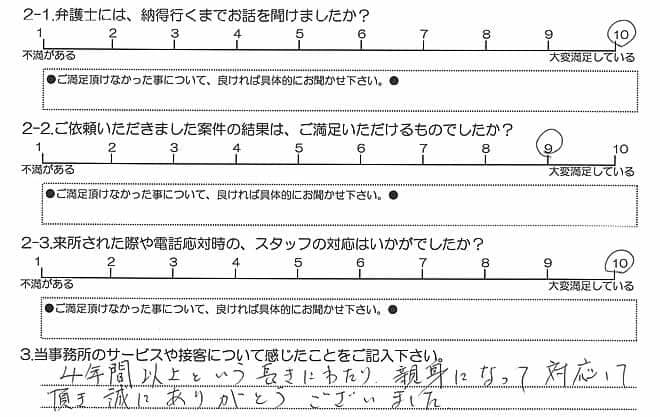 2-1.弁護士には、納得行くまでお話を聞けましたか？
1 2 3 4 5 6 7 8 9 10
不満がある 大変満足している
●ご満足頂けなかった事について、良ければ具体的にお聞かせ下さい。●
2-2.ご依頼いただきました案件の結果は、ご満足いただけるものでしたか？
1 2 3 4 5 6 7 8 9 10
不満がある 大変満足している
●ご満足頂けなかった事について、良ければ具体的にお聞かせ下さい。●
2-3.来所された際や電話応対時の、スタッフの対応はいかがでしたか？
1 2 3 4 5 6 7 8 9 10
不満がある 大変満足している
●ご満足頂けなかった事について、良ければ具体的にお聞かせ下さい。●
3.当事務所のサービスや接客について感じたことをご記入下さい。
4年間以上という長きにわたり、親身になって対応して
頂き誠にありがとうございました